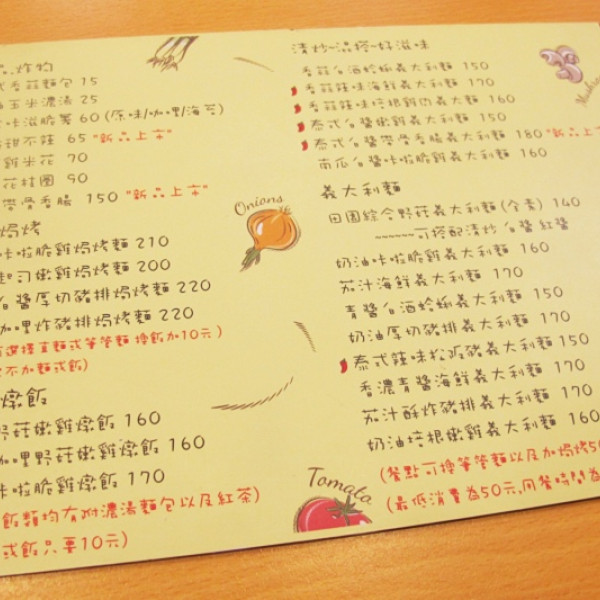 炸物
式香蒜麵包 15
玉米濃湯 25
咔滋脆薯 60 (原味/咖哩/海苔)
甜不辣 65 "新品上市"
雞米花 70
花枝圈 90
帶骨香腸 150 "新品上市"
焗烤
咔啦脆雞焗烤麵 210
起司嫩雞焗烤麵 200
白醬厚切豬排焗烤麵 220
咖哩炸豬排焗烤麵 220
選擇直麵或筆管麵 換飯加10元)
不加麵或飯)
燉飯
野菇嫩雞燉飯 160
咖哩野菇嫩雞燉飯 160
咔啦脆雞燉飯 170
飯類均有附濃湯麵包以及紅茶)
或飯只要10元)
Onions
Tomato
清炒~混搭~好滋味
香蒜白酒蛤蜊義大利麵 150
香蒜辣味海鮮義大利麵 170
香蒜辣味培根雞肉義大利麵 160
泰式白醬嫩雞義大利麵 150
泰式白醬帶骨香腸義大利麵 180 "新品上
南瓜白醬咔啦脆雞義大利麵 160
義大利麵
田園綜合野菇義大利麵(全素) 140
~~~~~~可搭配清炒 白醬 紅醬
奶油咔啦脆雞義大利麵 160
茄汁海鮮義大利麵 170
青醬白酒蛤蜊義大利麵 150
奶油厚切豬排義大利麵 170
泰式辣味松阪豬義大利麵 150
香濃青醬海鮮義大利麵 170
茄汁酥炸豬排義大利麵 170
奶油培根嫩雞義大利麵 160
(餐點可換筆管麵以及加焗烤50
(最低消費為50元,用餐時間為